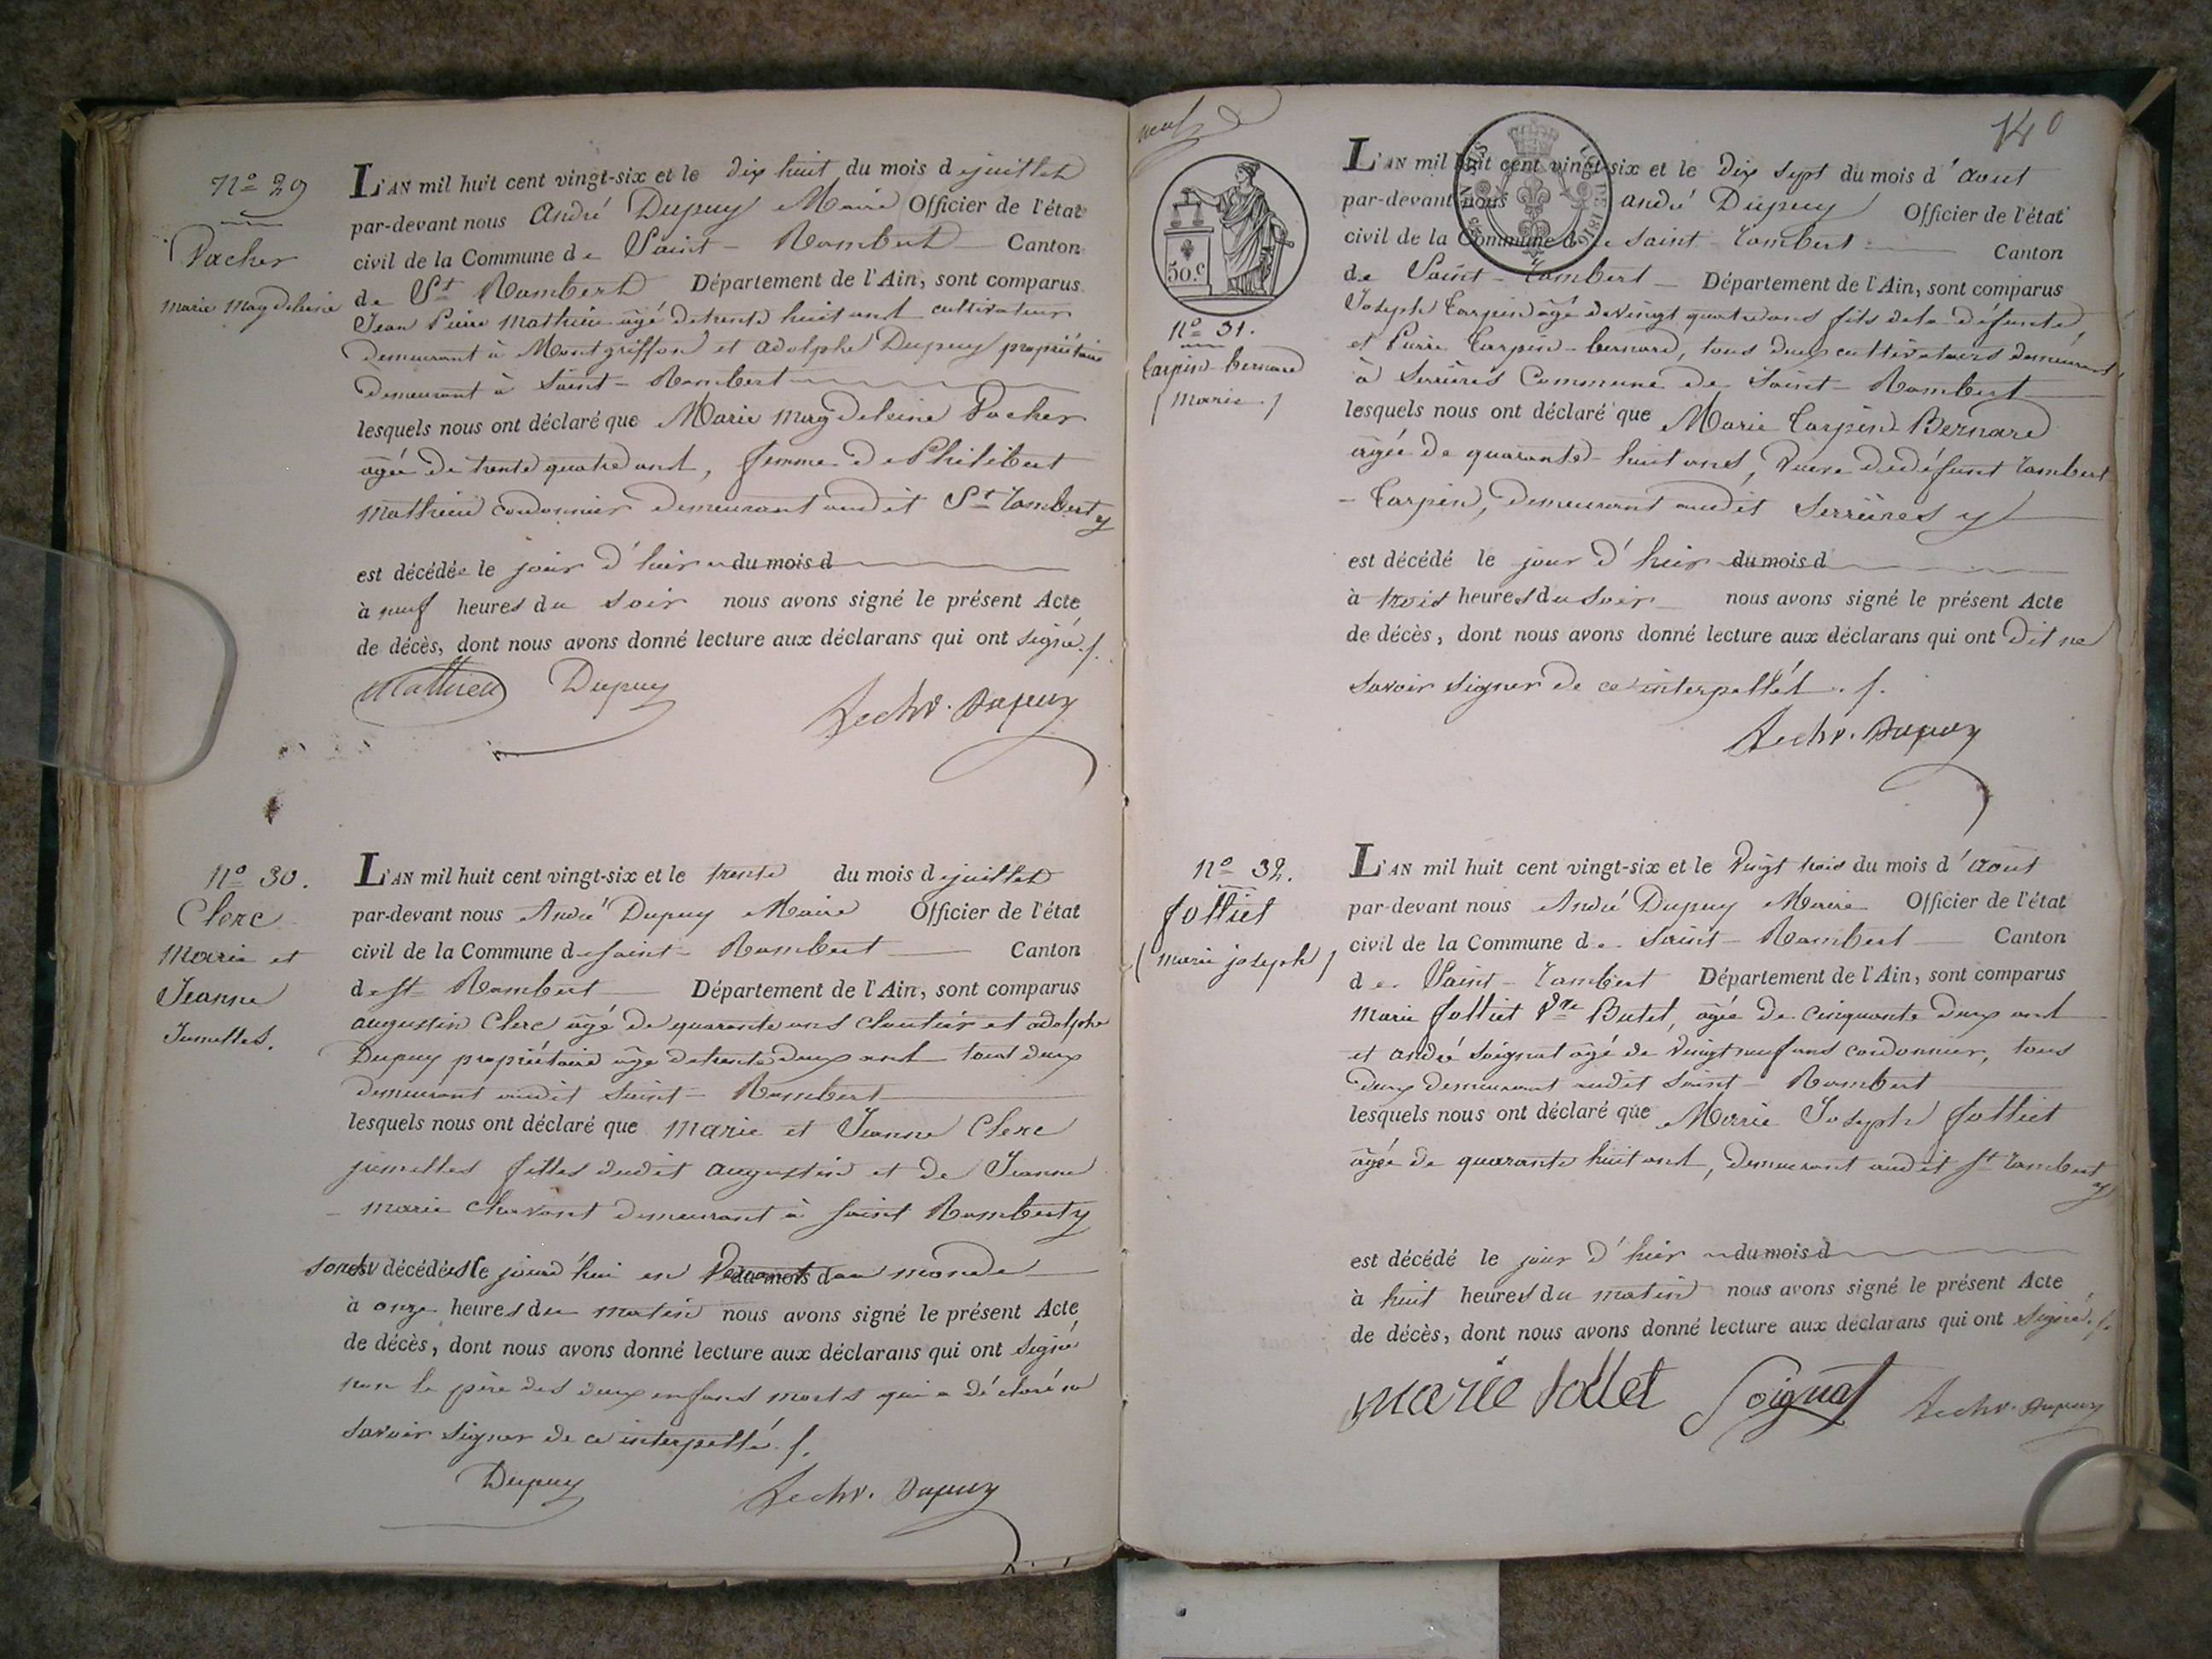 N.º 29
Vacher
marie magdeleine
L'AN mil huit cent vingt-six et le dix huit du mois de juillet
par-devant nous André Dupuy Maire Officier de l'état
civil de la Commune de Saint-Rambert Canton
de St Rambert Département de l'Ain, sont comparus
Jean Pierre Mathieu âgé de trente huit ans cultivateur
demeurant à Montgriffon et adolphe Dupuy propriétaire
demeurant à Saint-Rambert
lesquels nous ont déclaré que Marie magdeleine Vacher
agée de trente quatre ans, femme de Philibert
Mathieu cordonnier demeurant audit St Rambert y
est décédée le jour d'hier du mois d
à neuf heures du soir nous avons signé le présent Acte
de décès, dont nous avons donné lecture aux déclarans qui ont signé
Mathieu Dupuy
Dupuy
N.º 30.
Clerc
Marie et
Jeanne
Jumelles.
L'AN mil huit cent vingt-six et le trente du mois de juillet
par-devant nous André Dupuy Maire Officier de l'état
civil de la Commune de Saint-Rambert Canton
de St Rambert Département de l'Ain, sont comparus
augustin Clerc âgé de quarante ans cloutier et adolphe
Dupuy propriétaire âgé de trente deux ans tous deux
demeurant audit Saint-Rambert
lesquels nous ont déclaré que marie et Jeanne Clerc
jumelles filles dudit augustin et de Jeanne
marie chavant demeurant à saint Rambert y
sont décédées le jourd'hui en venant au monde du mois d
à onze heures du matin nous avons signé le présent Acte
de décès, dont nous avons donné lecture aux déclarans qui ont signé
non le père des deux enfans morts qui a déclaré ne
savoir signer de ce interpellé
Dupuy Dupuy
140
50.c
N.º 31.
Carpin-bernard
(marie)
L'AN mil huit cent vingt-six et le dix sept du mois d'aout
par-devant nous andré Dupuy Officier de l'état
civil de la Commune de saint-rambert Canton
de Saint-rambert Département de l'Ain, sont comparus
Joseph Carpin âgé de vingt quatre ans fils de la défunte,
et Pierre Carpin-bernard, tous deux cultivateurs demeurant
à Serrières Commune de Saint-Rambert
lesquels nous ont déclaré que Marie Carpin Bernard
agée de quarante-huit ans, veuve du défunt rambert
-Carpin, demeurant audit Serrières y
est décédé le jour d'hier du mois d
à trois heures du soir nous avons signé le présent Acte
de décès, dont nous avons donné lecture aux déclarans qui ont dit ne
savoir signer de ce interpellés
Dupuy
N.º 32.
follliet
(marie joseph)
L'AN mil huit cent vingt-six et le vingt trois du mois d'aout
par-devant nous André Dupuy Maire Officier de l'état
civil de la Commune de Saint-Rambert Canton
de Saint-rambert Département de l'Ain, sont comparus
Marie folliet Vve Butet, agée de cinquante deux ans
et andré soignat agé de vingt neuf ans cordonnier, tous
deux demeurant audit Saint-Rambert
lesquels nous ont déclaré que Marie Joseph folliet
agée de quarante huit ans, demeurant audit St rambert y
est décédé le jour d'hier du mois d
à huit heures du matin nous avons signé le présent Acte
de décès, dont nous avons donné lecture aux déclarans qui ont signé
marie follet Soignat Dupuy